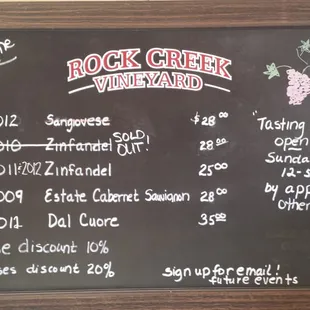 ROCK CREEK
VINEYARD
012 Sangovese $28.00
2010 Zinfandel SOLD OUT! 28.00
011-2012 Zinfandel 25.00
009 Estate Cabernet Sauvignon 28.00
012 Dal Cuore 35.00
e discount 10%
ses discount 20%
"Tasting
open
Sunda
12-5
by app
other
sign up for email!
future events